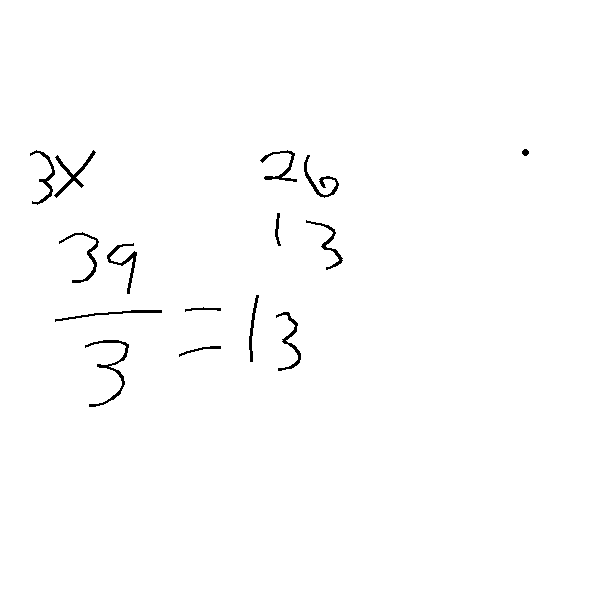 3x 26
13
39
3 = 13